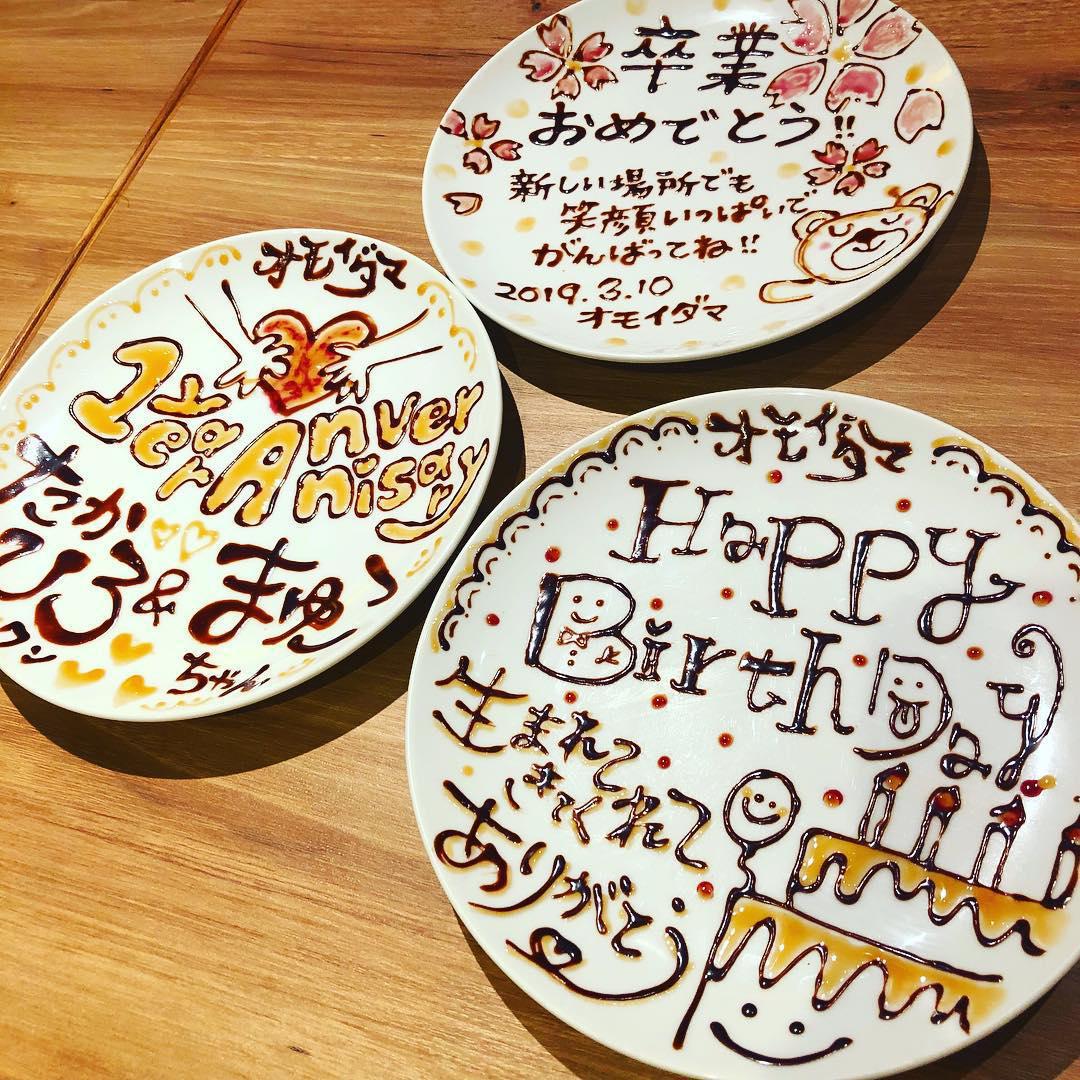 卒業
おめでとう!!
新しい場所でも
笑顔いっぱいで
がんばってね!!
2019.3.10
オモイダマ
オモイダマ
1
Year
Anniver
Anisary
たか
ひろ & まゆ
ちゃん
オモイダマ
Happy
BirthDay
生まれて
きてくれて
ありがとう